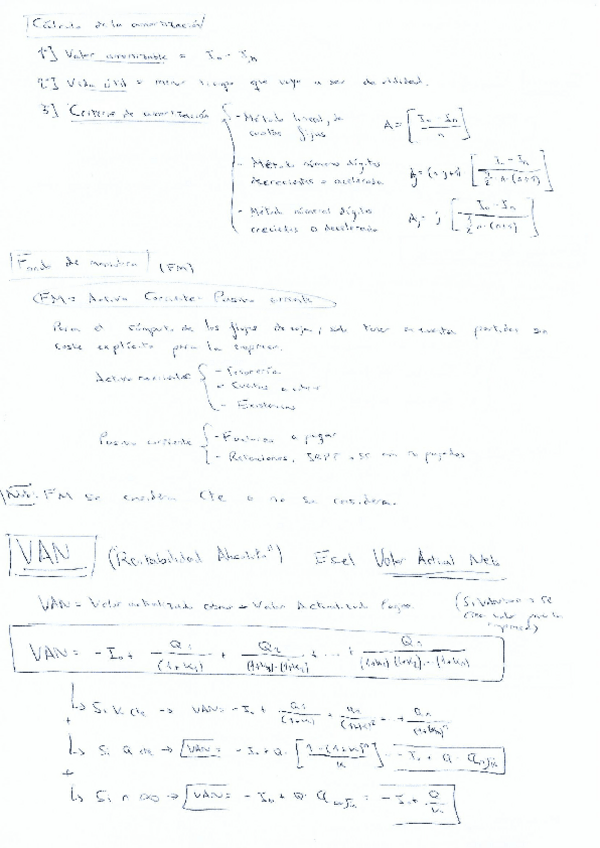 Cálculo de la amortización
1º] Valor amortizable = I₀ - Iₙ
2º] Vida útil = menor tiempo que vaya a ser de utilidad.
3] Criterio de amortización { - Método lineal, de cuotas fijas A = [I₀ - Iₙ / n]
- Método números dígitos decrecientes o acelerado
- Método números dígitos crecientes o decelerado
Fondo de maniobra (FM)
FM = Activo Corriente - Pasivo corriente
Para el cómputo de los flujos de caja, solo tener en cuenta partidas sin
coste explícito para la empresa.
Activo corriente { - Tesorería
- Cuentas a cobrar
- Existencias
Pasivo corriente { - Facturas a pagar
- Retenciones, IRPF, SS no pagados
Nota: FM se considera Cte o no se considera.
VAN (Rentabilidad Absoluta) Es el Valor Actual Neto
VAN = Valor actualizado cobros - Valor Actualizado Pagos.
VAN = -I₀ + Q₁/(1+k₁) + Q₂/(1+k₁)·(1+k₂) + ... + Qₙ/(1+k₁)(1+k₂)...(1+kₙ)
↳ Si k cte → VAN = -I₀ + Q₁/(1+k) + Q₂/(1+k)² + ... + Qₙ/(1+k)ⁿ
↳ Si Q cte → VAN = -I₀ + Q · [1-(1+k)⁻ⁿ / k] = -I₀ + Q · aₙ¬k
↳ Si n ∞ → VAN = -I₀ + Q · a∞¬k = -I₀ + Q/k